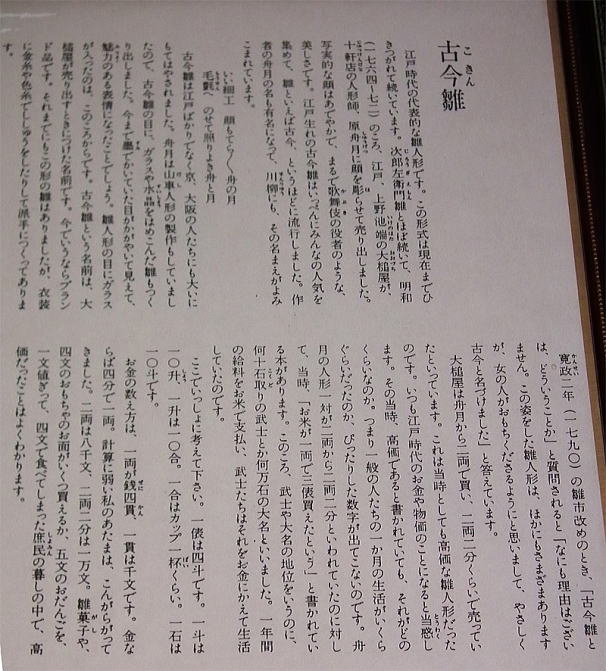 古今雛
江戸時代の代表的な雛人形です。この形式は現在までひ
きつがれて続いています。次郎左衛門雛とほぼ続いて、明和
(一七六四~七二)のころ、江戸、上野池端の大槌屋が、
十軒店の人形師、原舟月に頭を彫らせて売り出しました。
写実的な顔はあでやかで、まるで歌舞伎の役者のような、
美しさです。江戸生れの古今雛は、いっぺんにみんなの人気を
集めて、雛といえば古今、というほどに流行しました。作
者の舟月の名も有名になって、川柳にも、その名まえがよみ
こまれています。
いい細工 顔もてらてら舟の月
毛氈へ のせて照りよき舟と月
古今雛は江戸ばかりでなく京、大阪の人たちにも大いに
もてはやされました。舟月は山車人形の製作もしていまし
たので、古今雛の目に、ガラスや水晶をはめこんだ雛もつく
り出しました。今まで墨でかいていた目がかがやいて見えて、
魅力のある表情になったことでしょう。雛人形の目にガラス
が入ったのは、このころからです。古今雛という名前は、大
槌屋が売り出すときにつけた名前です。今でいうならブラン
ド品です。それまでにもこの形の雛はありましたが、衣装
に金糸や色糸でししゅうをしたりして派手につくってありま
す。
寛政二年(一七九〇)の雛市改めのとき、「古今雛と
は、どういうことか」と質問されると「なにも理由はござい
ません。この姿をした雛人形は、ほかにもさまざまあります
が、女の人がおもちくださるようにと思いまして、やさしく
古今と名づけました」と答えています。
大槌屋は舟月から二両で買い、二両二分くらいで売ってい
たといっています。これは当時としても高価な雛人形だった
のです。いつも江戸時代のお金や物価のことになると当惑し
ます。その当時、高価であると書かれていても、それがどの
くらいなのか。つまり一般の人たちの一か月の生活がいくら
ぐらいだったのか、ぴったりした数字が出てこないのです。舟
月の人形一対が二両から二両二分といわれていたのに対し
て、当時、「お米が一両で三俵買えたという」と書かれてい
る本があります。このころ、武士や大名の地位をいうのに、
何十石取りの武士とか何万石の大名といいました。一年間
の給料をお米で支払い、武士たちはそれをお金にかえて生活
していたのです。
ここでいっしょに考えて下さい。一俵は四斗です。一斗は
一〇升、一升は一〇合。一合はカップ一杯くらい。一石は
一〇斗です。
お金の数え方は、一両が銭四貫、一貫は千文です。金な
らば四分で一両。計算に弱い私のあたまは、こんがらがって
きました。二両は八千文、二両二分は一万文。雛菓子や、
四文のおもちゃのお面がいくつ買えるか、五文のおだんごを、
一文値ぎって、四文で食べてしまった庶民の暮しの中で、高
価だったことはよくわかります。